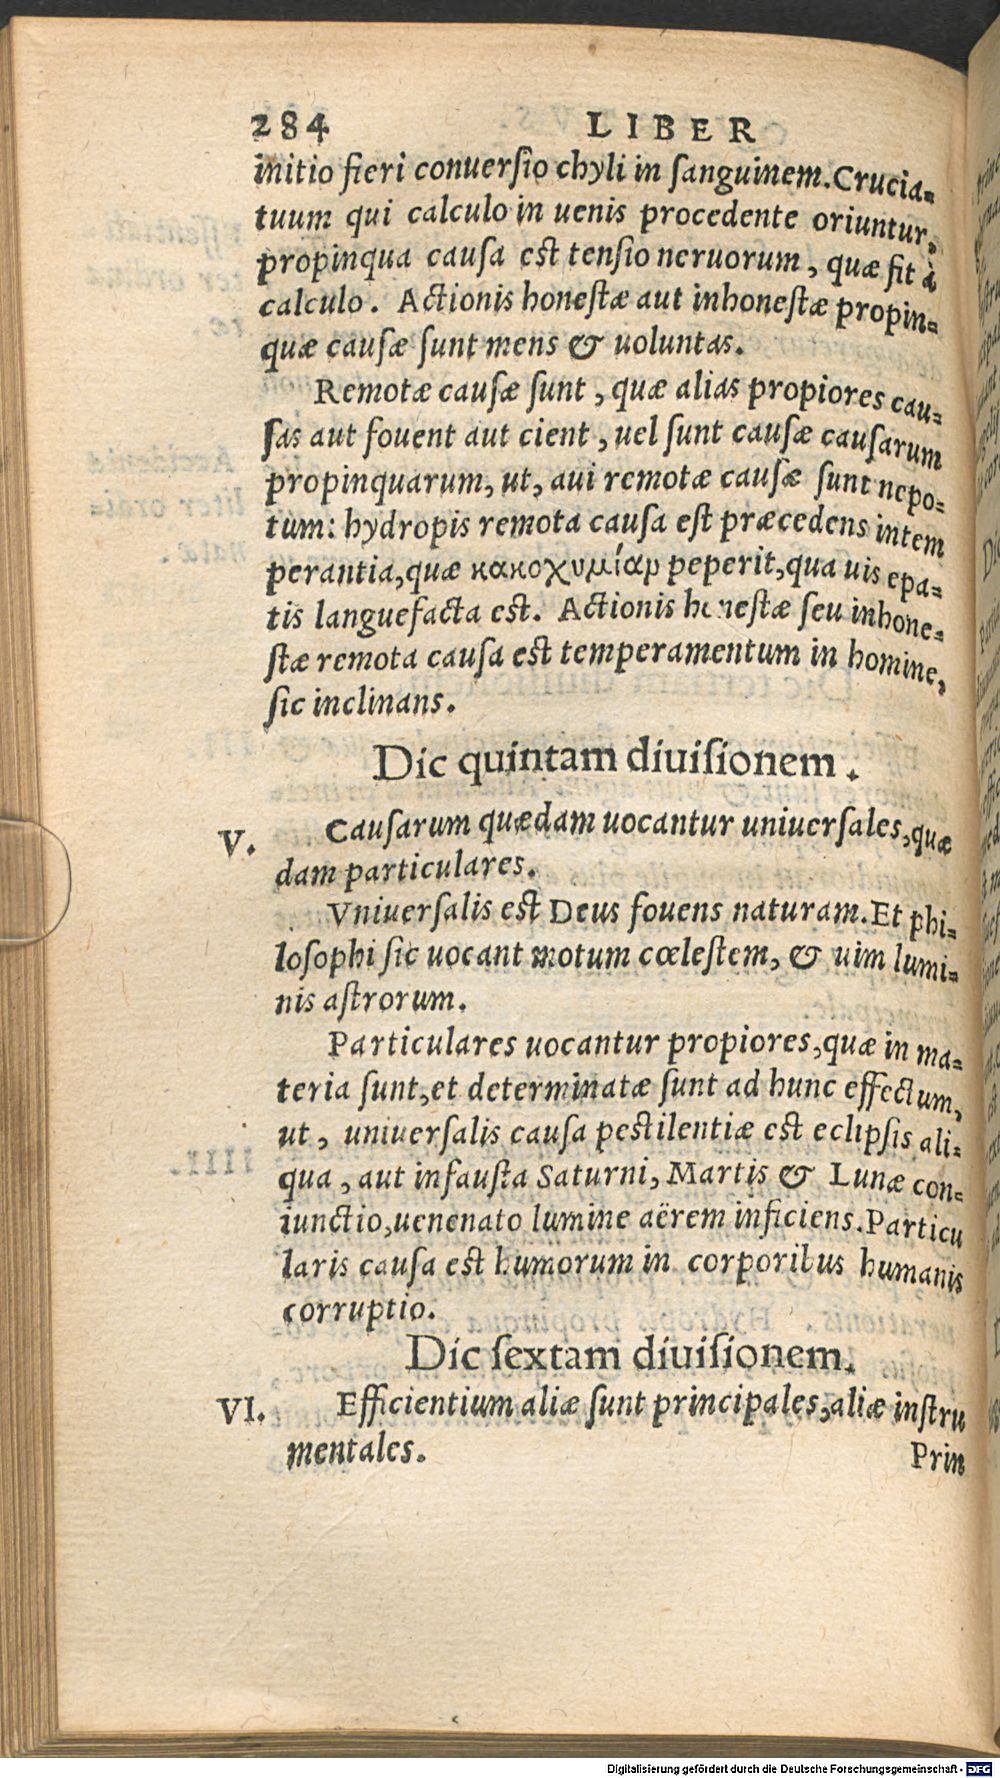 284 LIBER
initio fieri conuersio chyli in ſanguinem. Crucia-
tuum qui calculo in uenis procedente oriuntur,
propinqua cauſa est tensio neruorum, quæ fit à
calculo. Actionis honeſtæ aut inhoneſtæ propin-
quæ cauſæ ſunt mens & uoluntas.
Remotæ cauſæ ſunt, quæ alias propiores cau-
ſas aut fouent aut cient, uel ſunt cauſæ cauſarum
propinquarum, ut, aui remotæ cauſæ ſunt nepo-
tum: hydropis remota cauſa eſt præcedens intem
perantia, quæ κακοχυμίαρ peperit, qua uis epa-
tis languefacta est. Actionis honeſtæ ſeu inhone-
ſtæ remota cauſa est temperamentum in homine,
ſic inclinans.
Dic quintam diuiſionem.
V. Cauſarum quædam uocantur uniuerſales, quæ
dam particulares.
Vniuerſalis est Deus fouens naturam. Et phi-
loſophi ſic uocant motum cœleſtem, & uim lumi-
nis aſtrorum.
Particulares uocantur propiores, quæ in ma-
teria ſunt, et determinatæ ſunt ad hunc effectum,
ut, uniuerſalis cauſa pestilentiæ est eclipſis ali-
qua, aut infauſta Saturni, Martis & Lunæ con-
iunctio, uenenato lumine aërem inficiens. Particu
laris cauſa est humorum in corporibus humanis
corruptio.
Dic ſextam diuiſionem.
VI. Efficientium aliæ ſunt principales, aliæ inſtru
mentales.
Prin
Digitalisierung gefördert durch die Deutsche Forschungsgemeinschaft - DFG